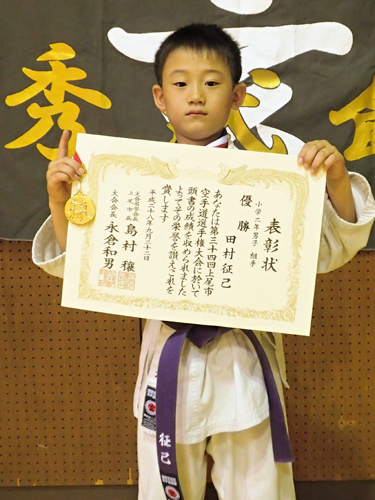 表彰状
小学二年男子 組手
優勝
田村征己
あなたは第三十四回上尾市
空手道選手権大会に於いて
頭書の成績を収められました
よってその栄誉を讃えこれを
賞します
平成二十八年九月二十二日
大会名誉会長
上尾市長
島村穰
大会会長
永倉和男
秀
征己